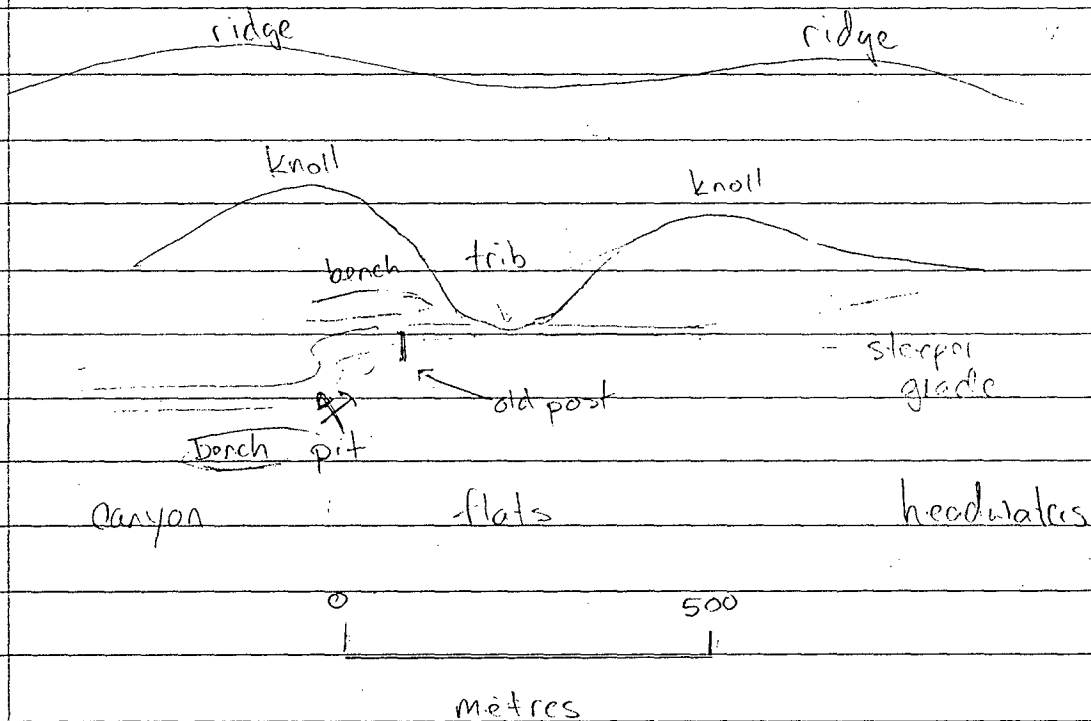 ridge ridge
knoll knoll
bench trib
steeper
grade
old post
bench pit
canyon flats headwaters
0 500
metres